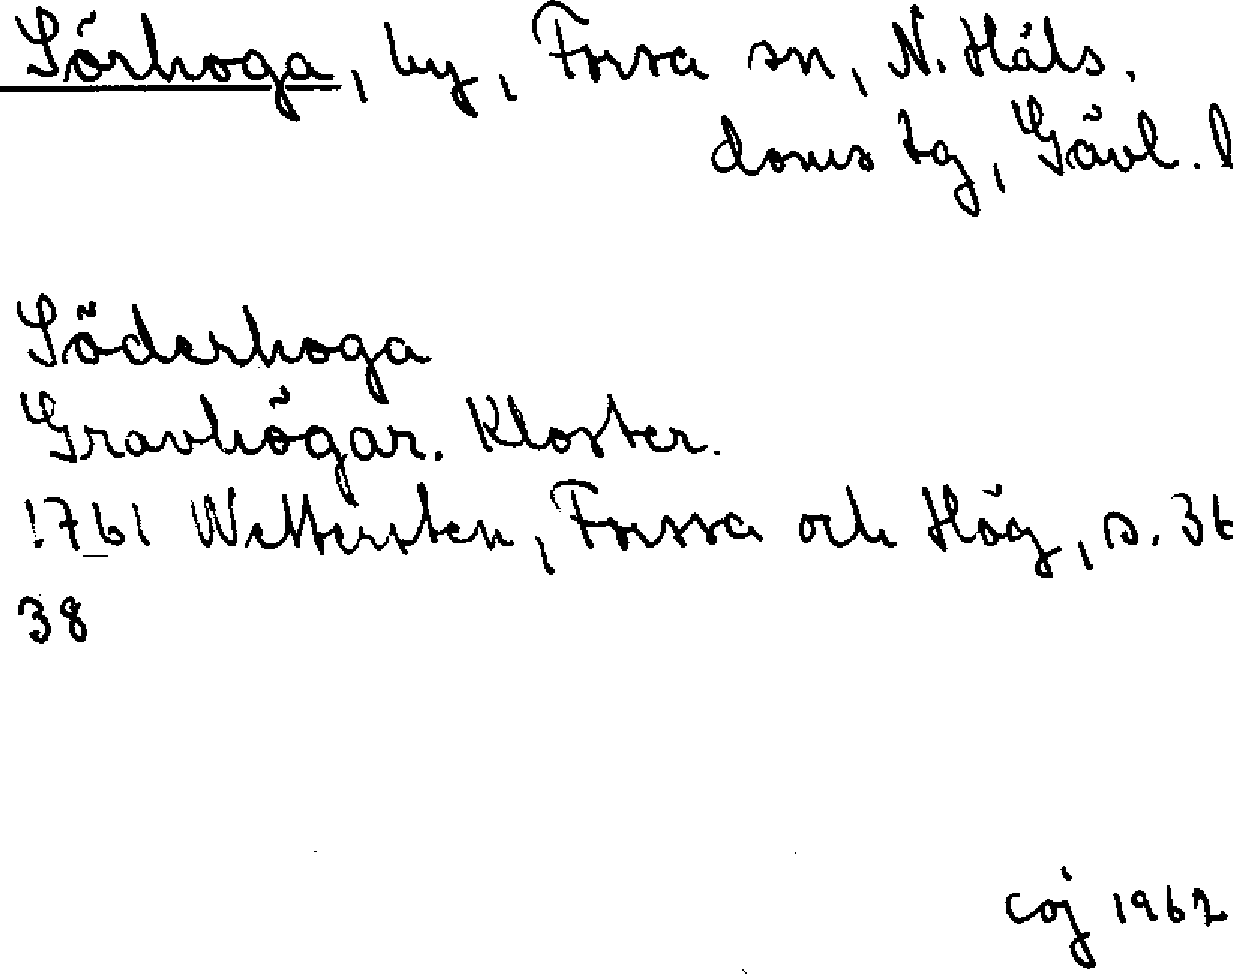 Sörhoga, by, Forsa sn, N. Häls.
doms tg, Gävl. l
Söderhoga
Gravhögar. Kloster.
1761 Wettersten, Forssa och Hög, s. 36
38
coj 1962